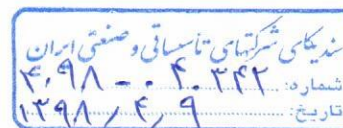 سندیکای شرکتهای تأسیساتی و صنعتی ایران
شماره: ۴۰۹۸ - ۰۴۰۳۴۲
تاریخ: ۱۳۹۸/۴/۹